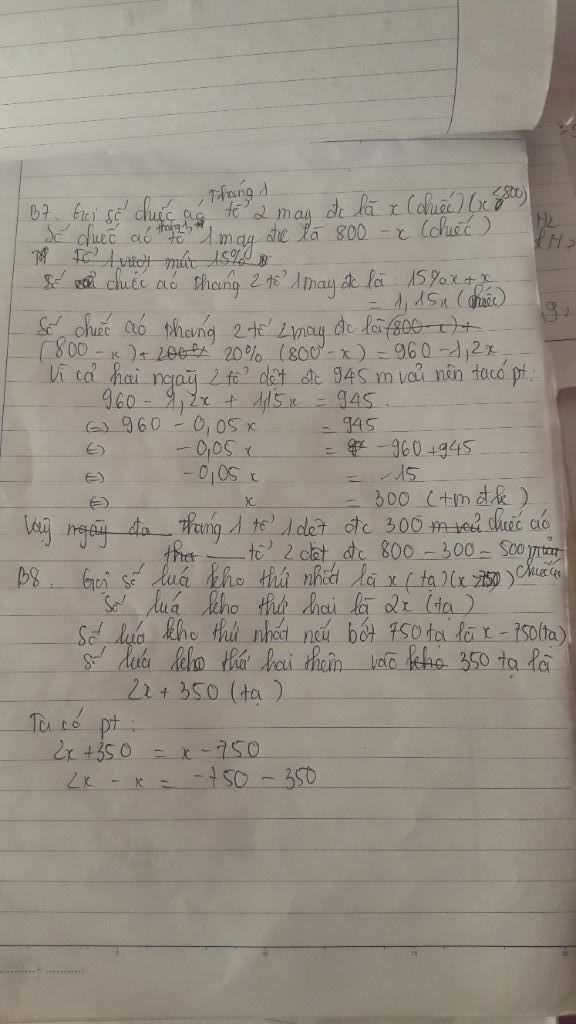 B7. Gọi số chiếc áo tháng 1 tổ 2 may đc là x (chiếc) (x < 800)
Số chiếc áo tháng 1 tổ 1 may đc là 800 - x (chiếc)
Tổ 1 vượt mức 15%
Số chiếc áo tháng 2 tổ 1 may đc là : 15%x + x
= 1,15x (chiếc)
Số chiếc áo tháng 2 tổ 2 may đc là (800 - x) +
(800 - x) + 200% 20% (800 - x) = 960 - 1,2x
Vì cả hai ngày 2 tổ dệt đc 945 m vải nên ta có pt:
960 - 1,2x + 1,15x = 945.
(=) 960 - 0,05x = 945
(=) -0,05x = -960 + 945
(=) -0,05x = -15
(=) x = 300 (t m đ k)
Vậy ngày đa tháng 1 tổ 1 dệt đc 300 m vải chiếc áo
tha tổ 2 dệt đc 800 - 300 = 500 m vải chiếc áo
B8. Gọi số luá kho thứ nhất là x (tạ) (x > 750)
Số luá kho thứ hai là 2x (tạ)
Số luá kho thứ nhất nếu bớt 750 tạ là x - 750 (tạ)
Số luá kho thứ hai thêm vào kho 350 tạ là
2x + 350 (tạ)
Ta có pt:
2x + 350 = x - 750
2x - x = -750 - 350